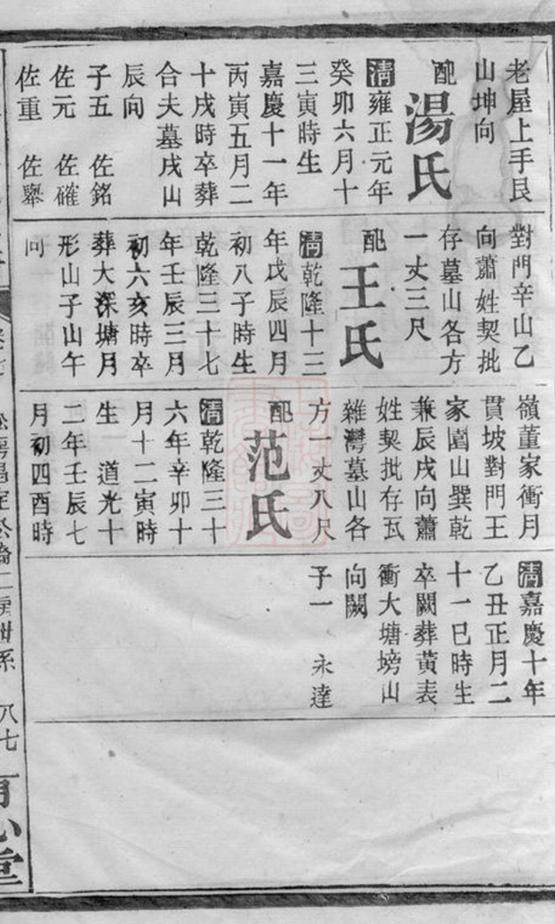 老屋上手艮
山坤向
配湯氏
清雍正元年
癸卯六月十
三寅時生
嘉慶十一年
丙寅五月二
十戌時卒葬
合夫墓戌山
辰向
子五 佐銘
佐元 佐確
佐重 佐舉
對門辛山乙
向蕭姓契批
存墓山各方
一丈三尺
配王氏
清乾隆十三
年戊辰四月
初八子時生
乾隆三十七
年壬辰三月
初六亥時卒
葬大深塘月
形山子山午
向
嶺董家衝月
貫坡對門王
家園山巽乾
兼辰戌向蕭
姓契批存瓦
雜灣墓山各
方一丈八尺
配范氏
清乾隆三十
六年辛卯十
月十二寅時
生 道光十
二年壬辰七
月初四酉時
清嘉慶十年
乙丑正月二
十一巳時生
卒闕葬黃表
衝大塘塝山
向闕
子一 永達
八七